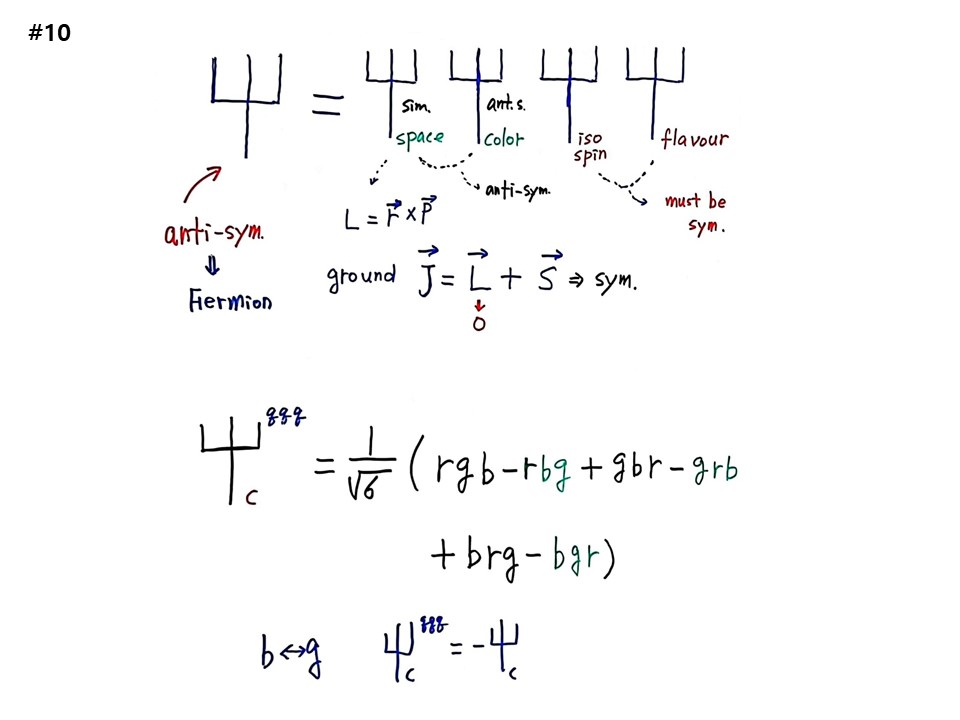 #10
Ψ = Ψ Ψ Ψ Ψ
sim. ant.s.
space color iso spin flavour
anti-sym.
must be
sym.
L = r⃗ × P⃗
anti-sym.
⇓
Fermion
ground J⃗ = L⃗ + S⃗ ⇒ sym.
↓
0
Ψ_c^{qqq} = 1/√6 ( rgb - rbg + gbr - grb
+ brg - bgr)
b↔g Ψ_c^{qqq} = -Ψ_c